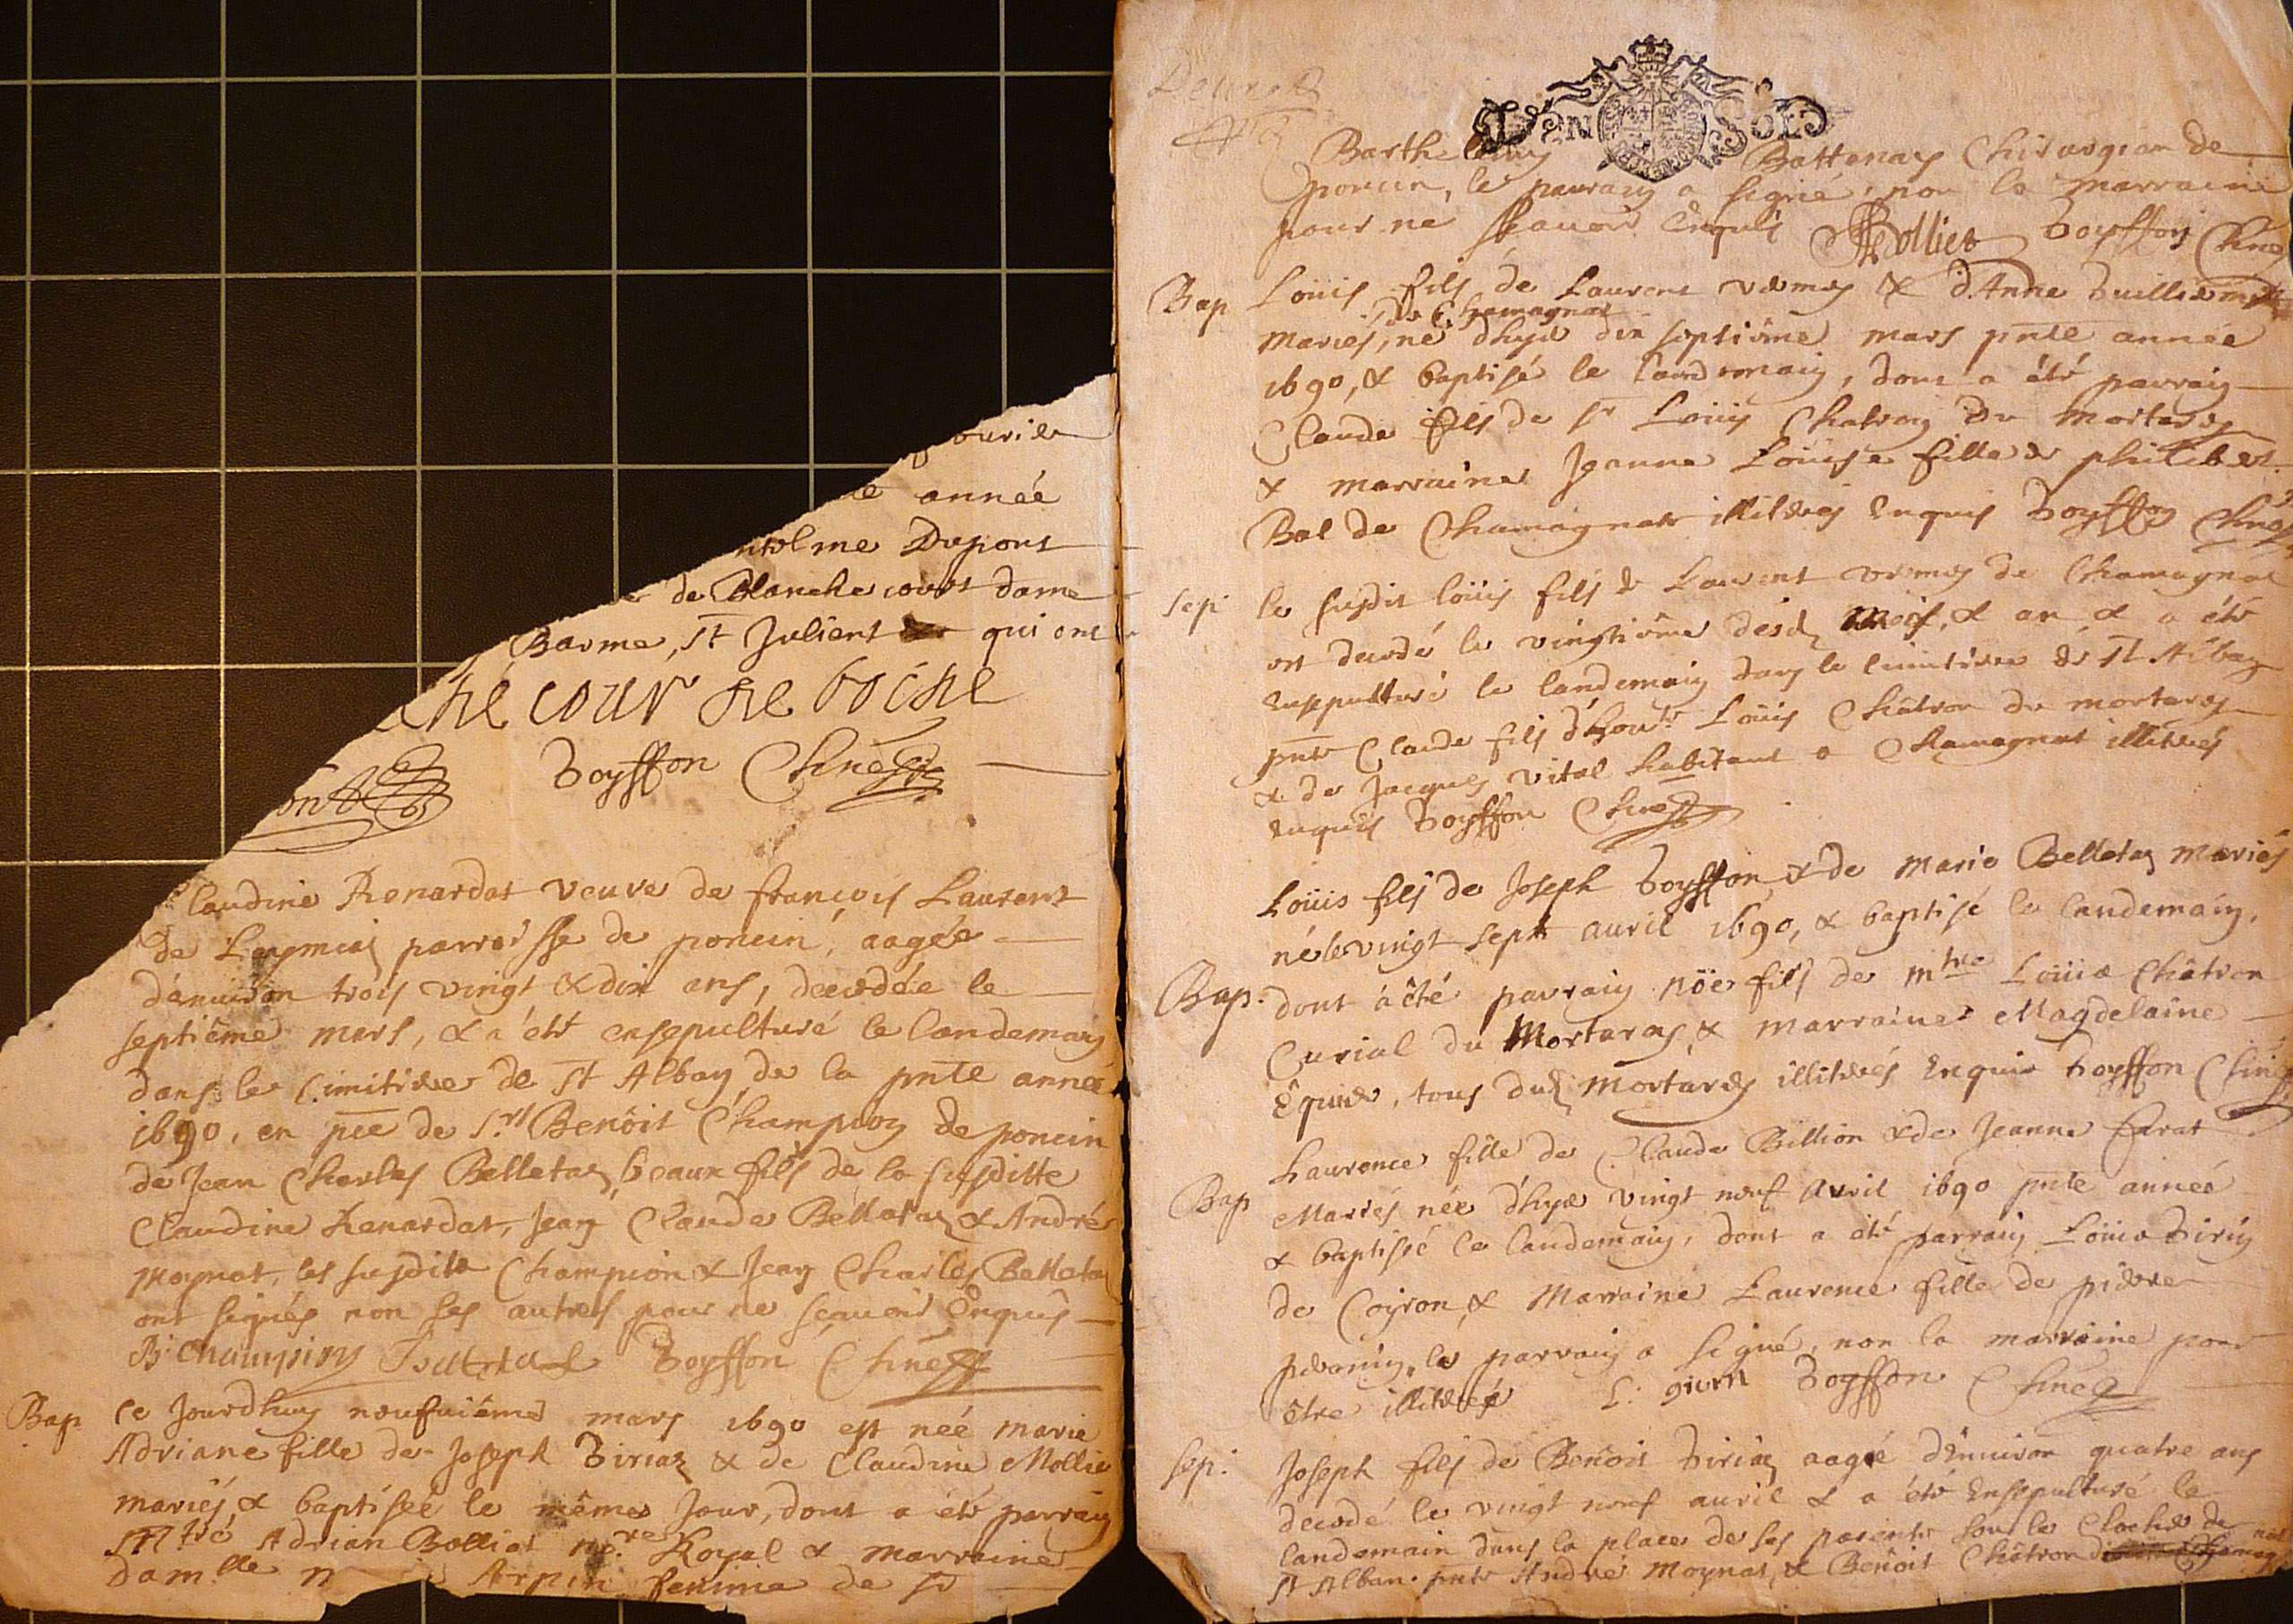 année
Dupont
de Blanchecourt dame
Barme, St Julient qui ont
Boysson
Claudine Renardat veuve de françois Laurent
de parroisse de poncin, aagée
d'enuiron trois vingt & dix ans, decedée le
septiême mars, & a été ensepulturé le landemain
dans le Cimitiere de St Alban de la pnte année
1690, en pce de Sr Benôit Champion de poncin
de Jean Charles Belletaz beaux fils de la susditte
Claudine Renardat, Jean Claude Belletaz & André
Moynat, les susdits Champion & Jean Charles Belleta
ont signés non les autres pour ne sçauoir Enquis
B. Champion Boysson
Bap Ce Jourdhuy neufuiême mars 1690 est née marie
Adriane fille de Joseph Tiriaz & de Claudine Mollie
mariés & baptisée le même Jour, dont a été parrain
Mtre Adrian Bolliet Royal & marraine
Damlle Arpin femme de
UN SOL
Barthelemy Battenay Chirurgien de
poncin, le parrain a signé, non la marraine
pour ne sçauoir Enquis Bolliet Boysson
Bap Loüis fils de Laurent & d'Anne
de Chamagnat
mariés, né dhyer dix septiême mars pnte année
1690, & baptisé le landemain, dont a été parrain
Claude fils de sr Loüis Chatron du Mortarey
& marraine Jeanne Loüise fille de philibert
Bal de Chamagnat illiterés Enquis Boysson
sep le susdit loüis fils de Laurent de Chamagnat
est decedé le vingtiême desd mois, & an & a été
ensepulturé le landemain dans le cimitiere de St Alban
pnts Claude fils d'hon. Loüis Châtron du mortarey
& de Jacques vital habitant a Chamagnat illiterés
enquis Boysson
Loüis fils de Joseph Boysson & de Marie Belletaz mariés
né le vingt sept auril 1690, & baptisé le landemain,
Bap. dont a été parrain nöe fils de mtre Loüis Châtron
Curial du Mortarey, & marraine Magdelaine
tous dud Mortarey illiterés Enquis Boysson
Laurence fille de Claude Billion & de Jeanne
Bap Mariés née d'hyer vingt neuf Avril 1690 pnte année
& baptisé le landemain, dont a été parrain Loüis
de Coyron, & Marraine Laurence fille de pierre
le parrain a signé, non la marraine pour
être illiterée Boysson
sep: Joseph fils de Benôit Tiriaz aagé d'enuiron quatre ans
decedé le vingt neuf auril & a été Ensepulturé le
landemain dans la place de ses parents sous le Clocher de
St Alban. pnts André Moynat, & Benôit Châtron